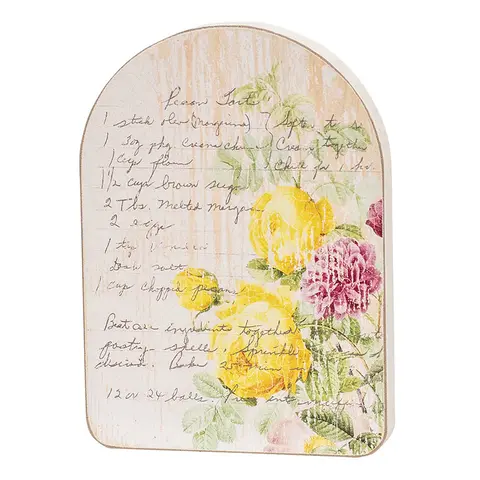 Pecan Tarts
1 stick oleo (Margarine) } Soften to
1 3oz pkg. Cream cheese } Cream together
1 cup flour Chill for 1 ho
1 1/2 cup brown sugar
2 Tbs. Melted Margar
2 eggs
1 tsp Vanilla
Dash salt
1 cup chopped pecans
Beat all ingredients together
pastry shells. Sprinkle
desired. Bake 20 min
12 or 24 balls. Press into